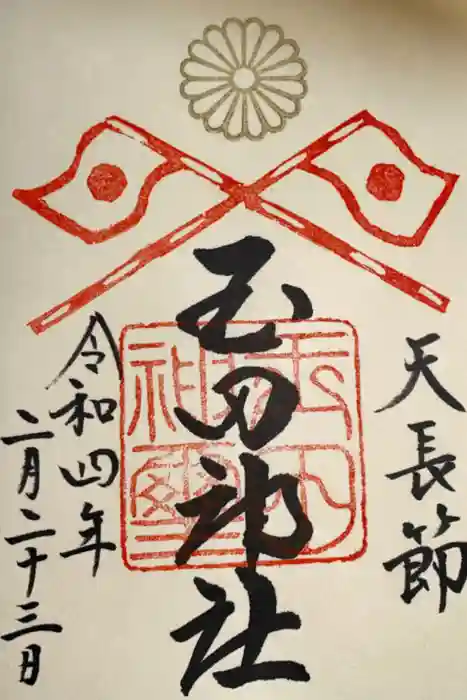 天長節
玉田神社
令和四年
二月二十三日